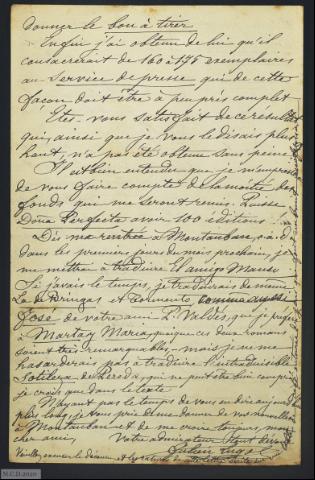 donner le bon à tirer
Enfin j'ai obtenu de lui qu'il
consacrerait de 160 à 175 exemplaires
au service de presse qui de cette
façon doit être à peu près complet.
Etes-vous satisfait de ce résultat
qui, ainsi que je vous le disais plus
haut, n'a pas été obtenu sans peine.
Il est bien entendu que je m'empresserai
de vous faire compte de la moitié des
fonds qui me seront remis. Puisse
Doña Perfecta avoir 100 éditions.
Dès ma rentrée à Montauban, c.à.d.
dans les premiers jours du mois prochain, je
me mettrai à traduire el amigo Manso
Si j'avais le temps, je traduirais de même
La de Bringas et Tormento comme aussi
José de votre ami P. Valdés, que je préfère
à Marta y Maria, quoique ces deux romans
soient très remarquables, mais je ne me
hasarderais pas à traduire l'intraduisible
Sotileza de Pereda, qui ne peut être bien compris
je crois que dans le texte.
N'ayant pas le temps de vous en dire aujourd'hui
plus long, je vous prie de me donner de vos nouvelles
à Montauban et de me croire toujours, mon
cher ami,
Votre admirateur
Julien Lugol
M.C.D. 2020